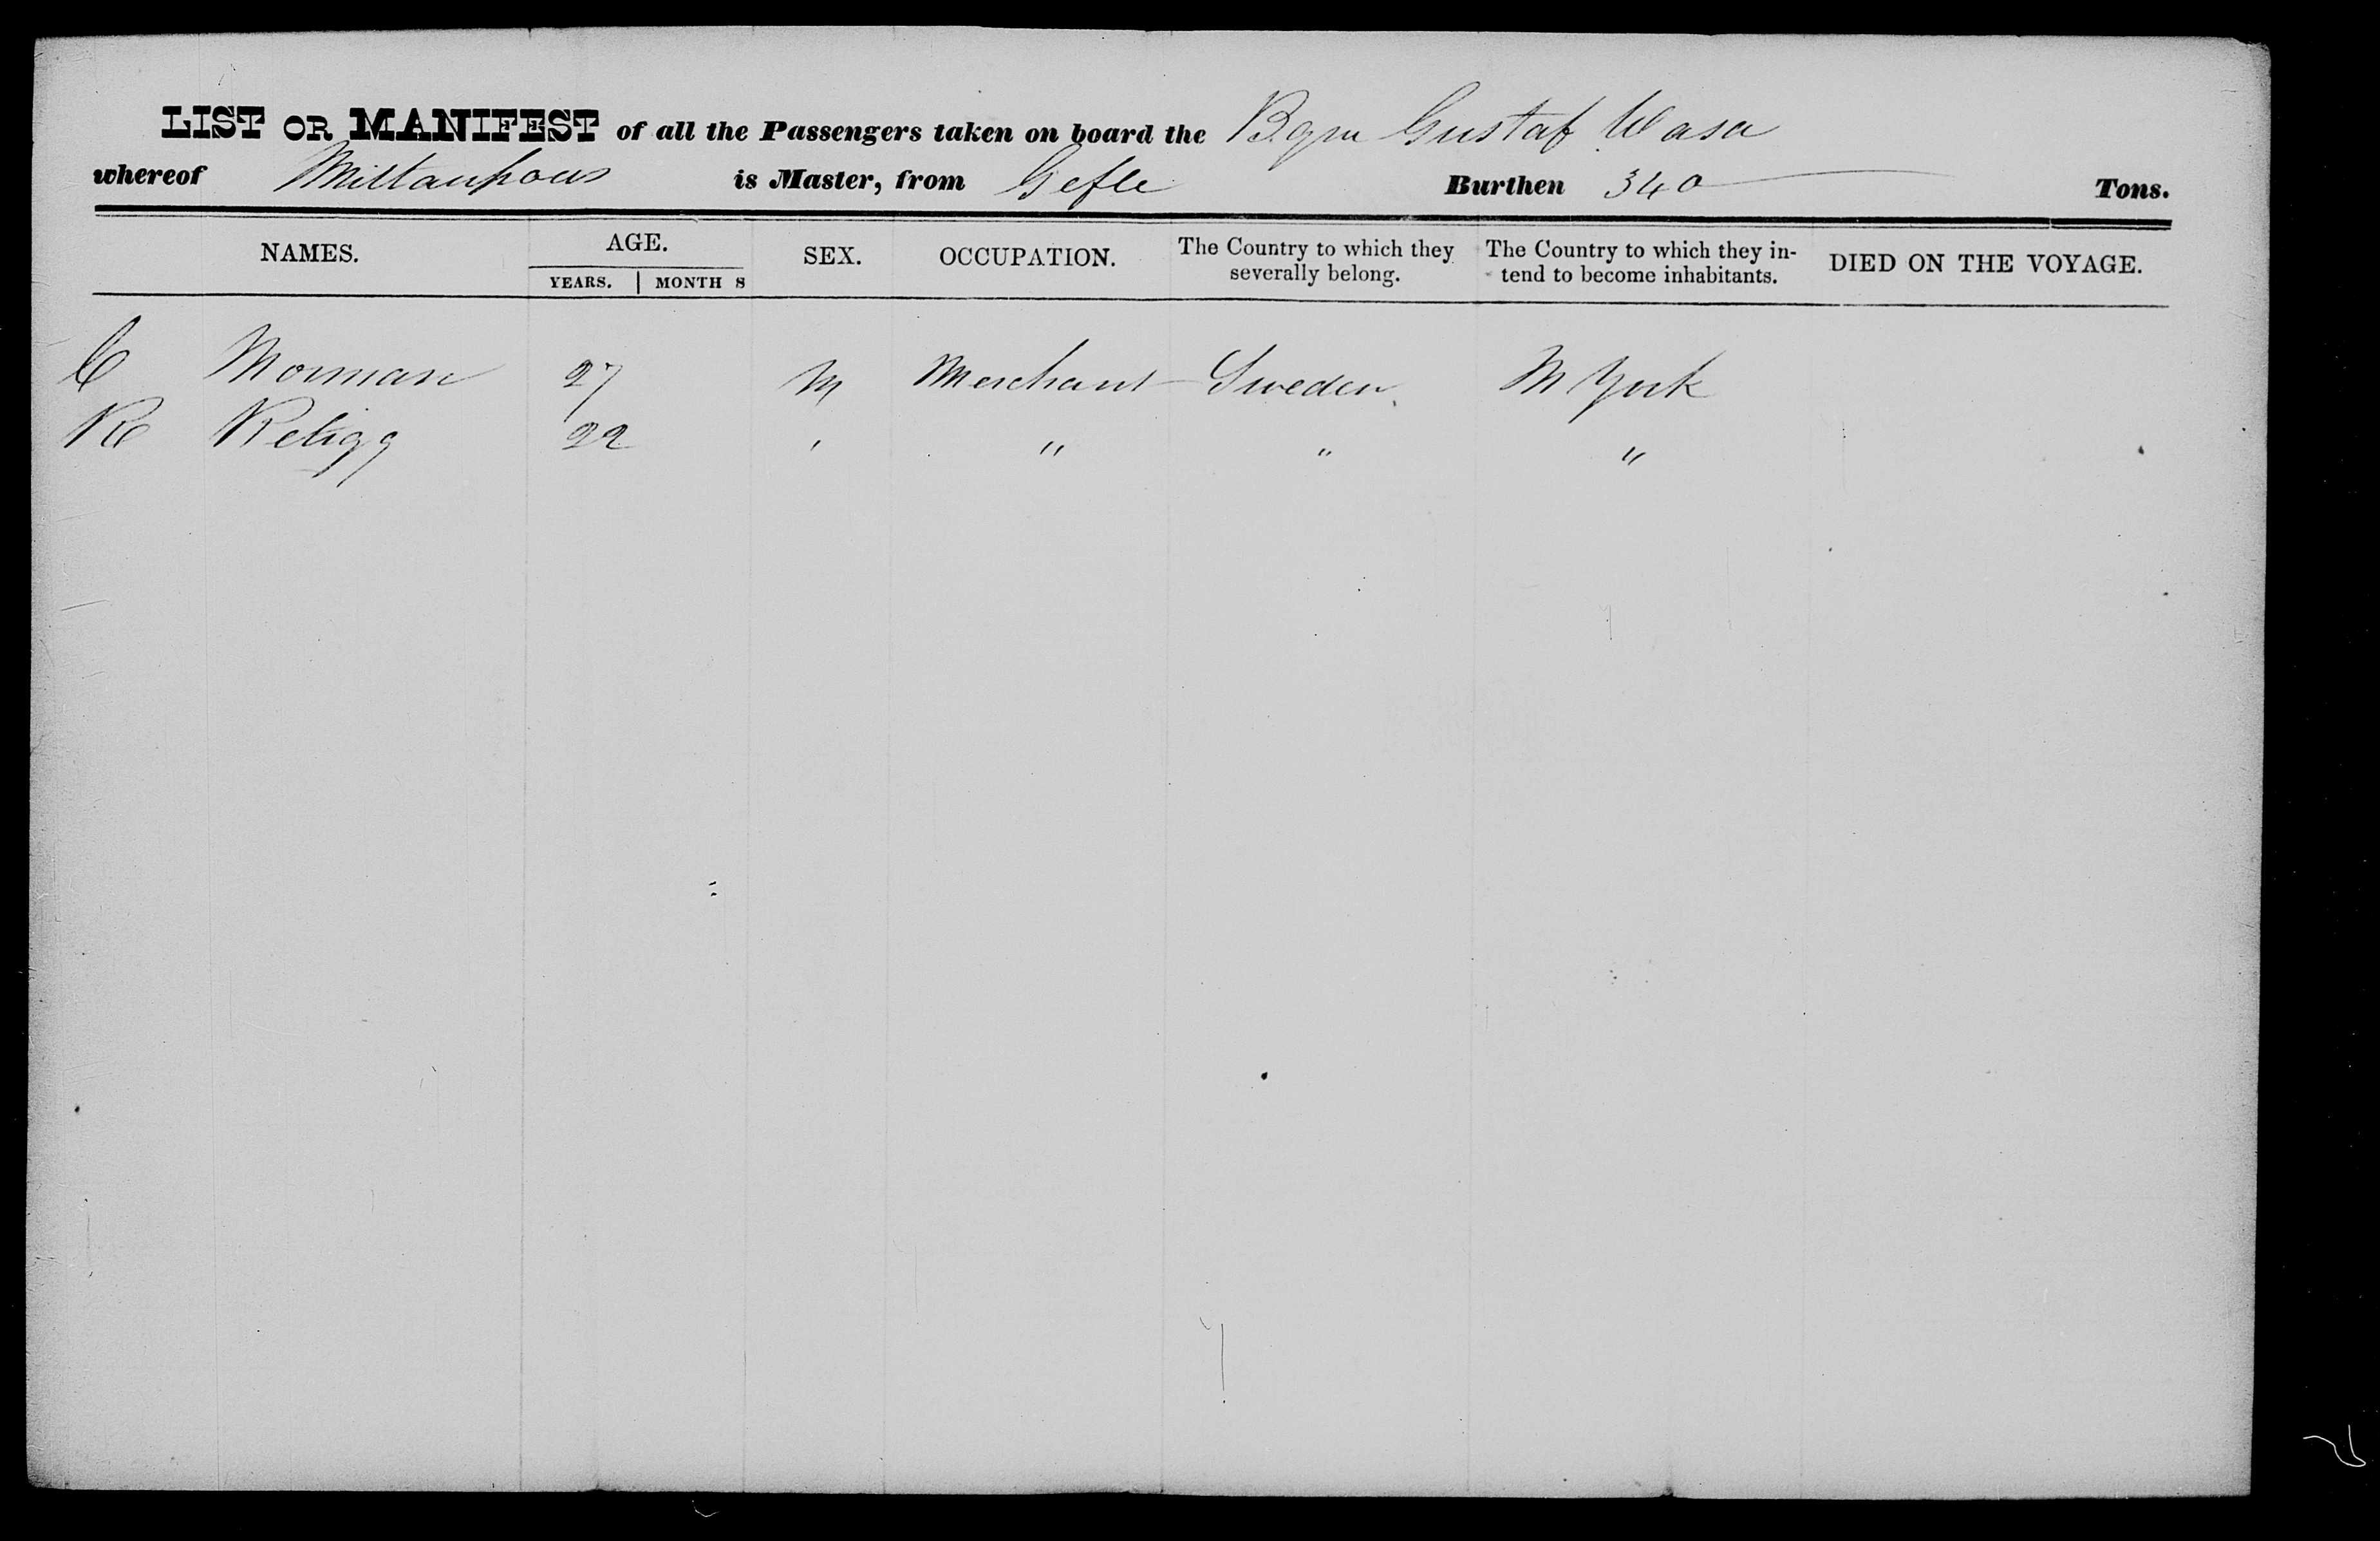 LIST OR MANIFEST of all the Passengers taken on board the Gustaf Wasa
whereof is Master, from Gefle Burthen 340 Tons.
NAMES. AGE. SEX. OCCUPATION. The Country to which they severally belong. The Country to which they in-tend to become inhabitants. DIED ON THE VOYAGE.
YEARS. MONTH S
C Morman 27 M Merchant Sweden N York
R Retigg 22 " " " "